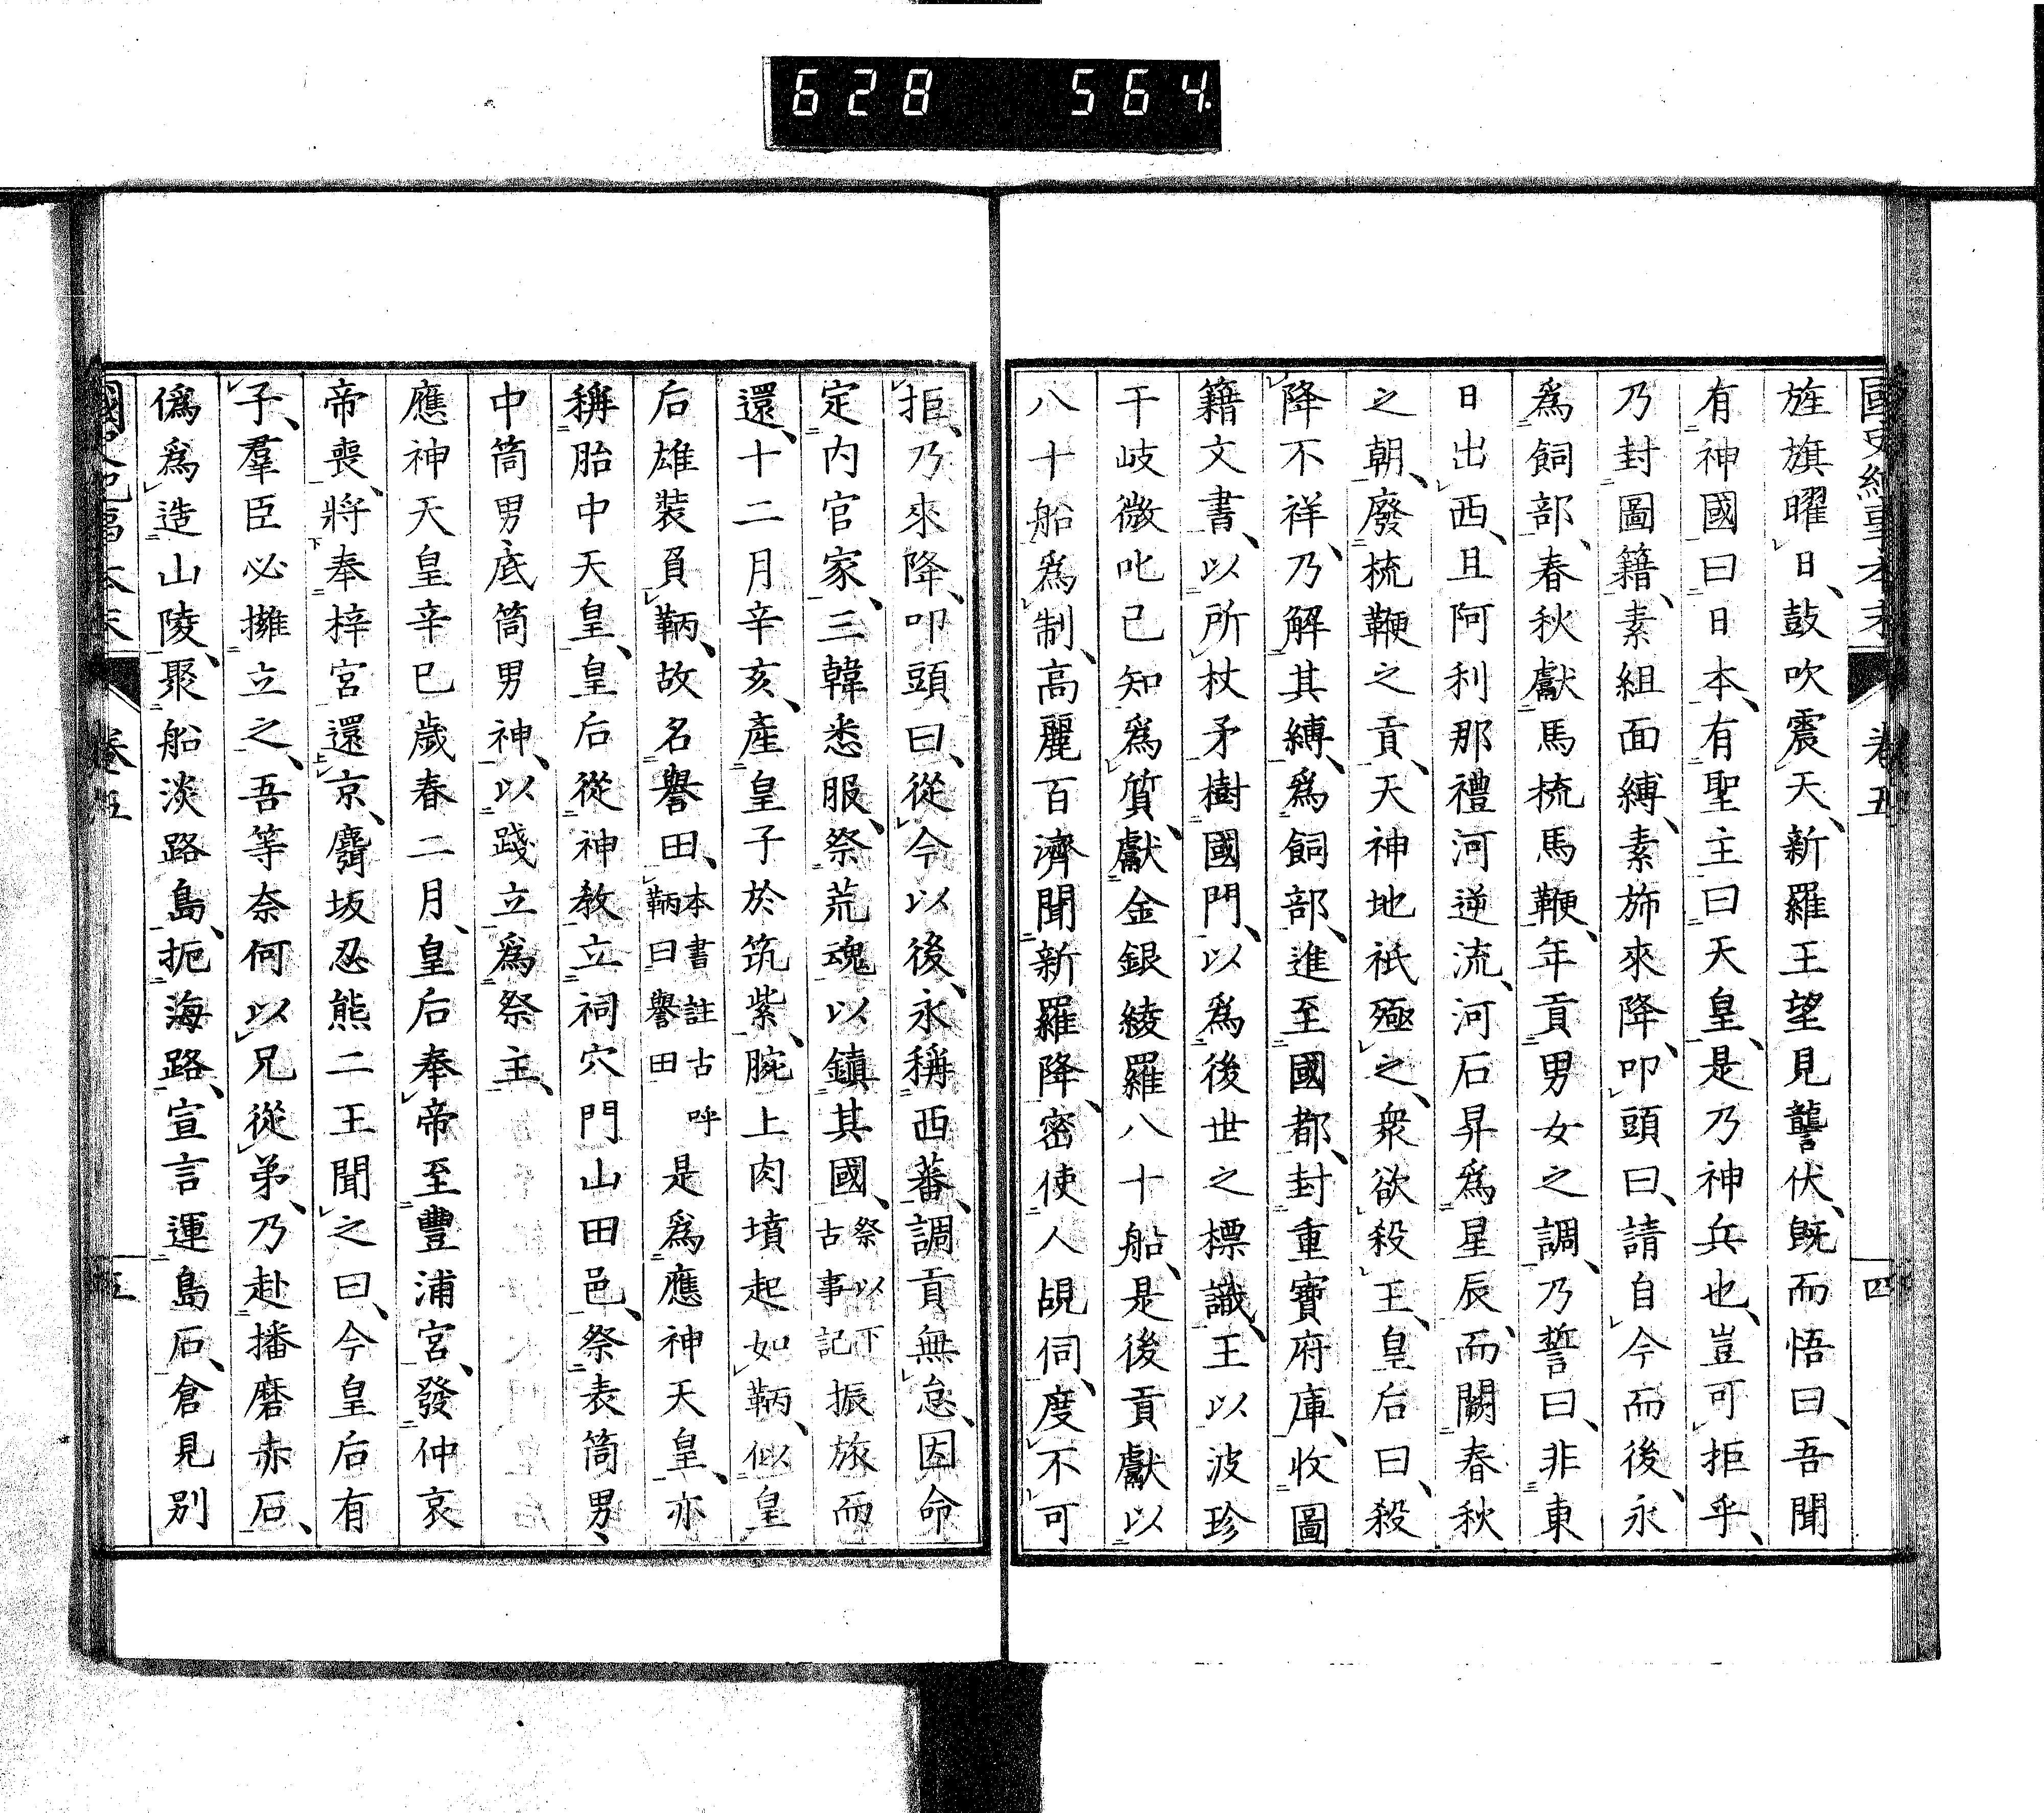 628 564
國史紀事本末 卷五 四
旌旗曜日、鼓吹震天、新羅王望見讋伏、既而悟曰、吾聞
有神國曰日本、有聖主曰天皇、是乃神兵也、豈可拒乎、
乃封圖籍、素組面縛、素斾來降、叩頭曰、請自今而後、永
爲飼部、春秋獻馬梳馬鞭、年貢男女之調、乃誓曰、非東
日出西、且阿利那禮河逆流、河石昇爲星辰、而闕春秋
之朝、廢梳鞭之貢、天神地祇殛之、衆欲殺王、皇后曰、殺
降不祥、乃解其縛、爲飼部、進至國都、封重寶府庫、收圖
籍文書、以所杖矛樹國門、以爲後世之標識、王以波珍
干岐微叱己知爲質、獻金銀綾羅八十船、是後貢獻以
八十船爲制、高麗百濟聞新羅降、密使人覘伺、度不可
拒、乃來降、叩頭曰、從今以後、永稱西蕃、調貢無怠、因命
定内官家、三韓悉服、祭荒魂以鎮其國、祭以下古事記振旅而
還、十二月辛亥、產皇子於筑紫、腕上肉墳起如鞆、似皇
后雄裝負鞆、故名譽田、本書註古呼鞆曰譽田是爲應神天皇、亦
稱胎中天皇、皇后從神敎立祠穴門山田邑、祭表筒男、
中筒男底筒男神、以踐立爲祭主、
應神天皇辛巳歲春二月、皇后奉帝至豐浦宮、發仲哀
帝喪、將奉梓宮還京、麛坂忍熊二王聞之曰、今皇后有
子、羣臣必擁立之、吾等奈何以兄從弟、乃赴播磨赤石、
僞爲造山陵、聚船淡路島、扼海路、宣言運島石、倉見別
國史紀事本末 卷五 五